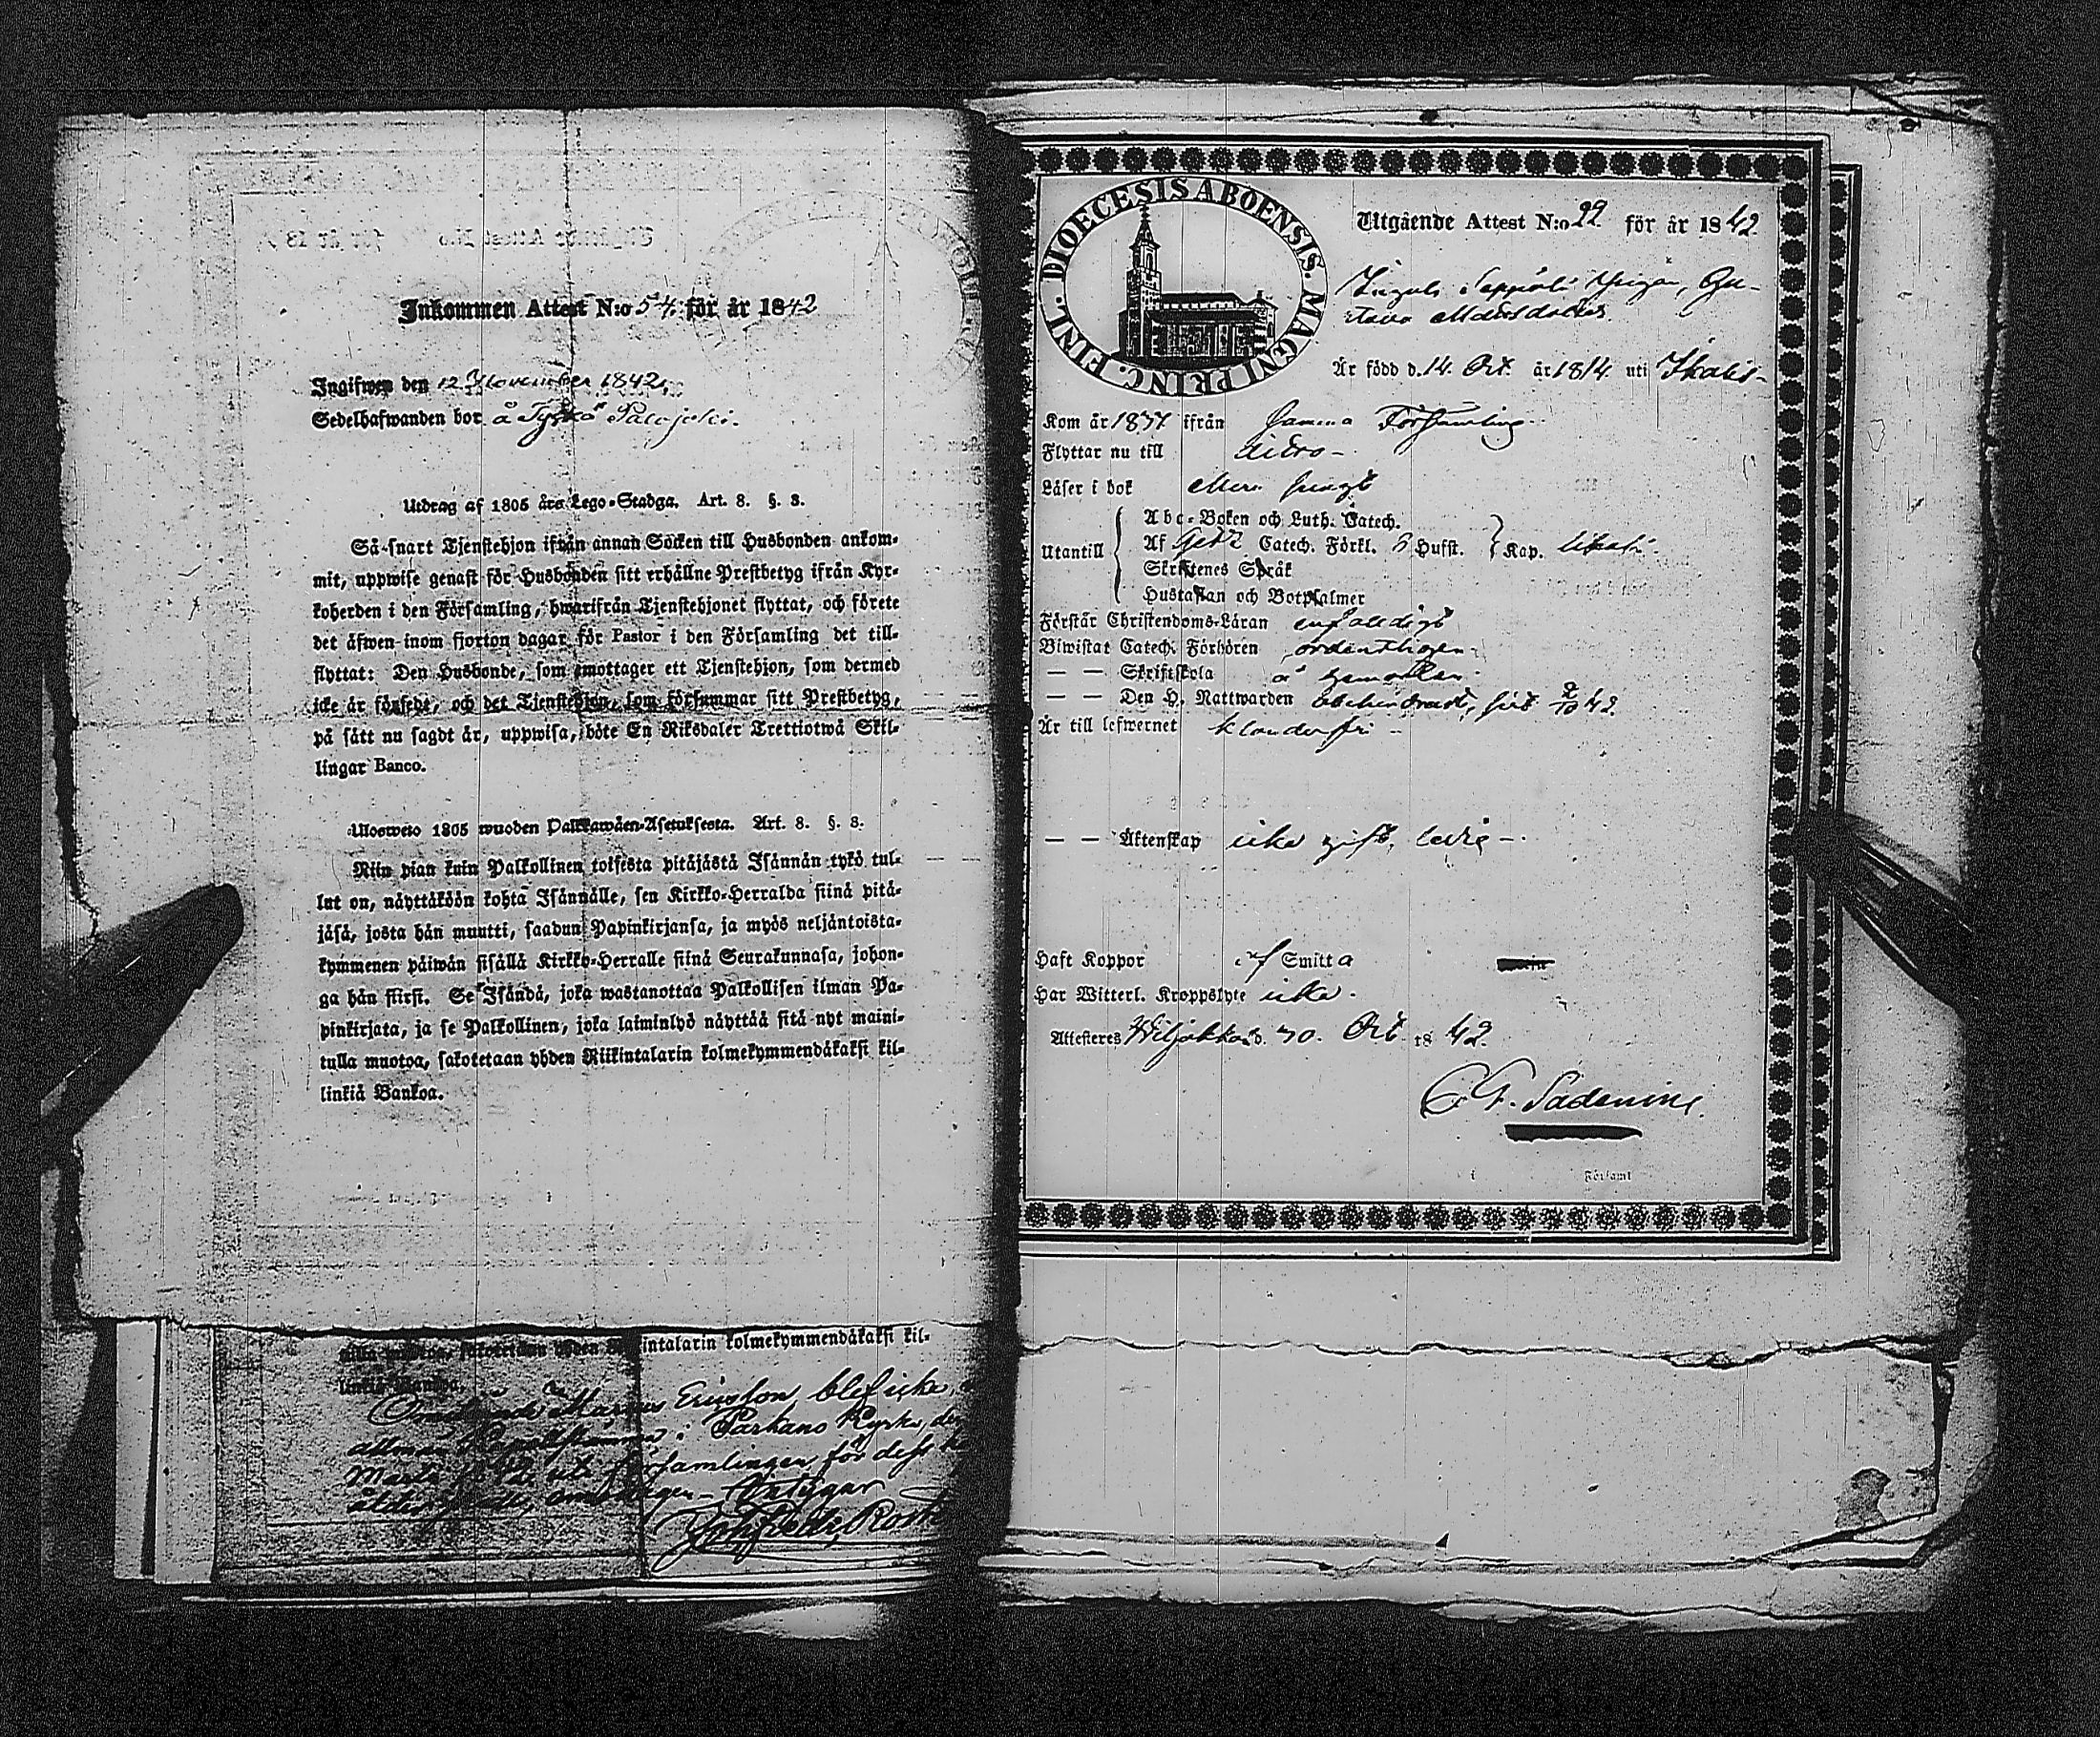 Inkommen Attest N:o 54. för år 1842
Ingifwen den 12 November 1842.
Sedelhafwanden bor å Tyskö
Utdrag af 1805 års Lego-Stadga. Art. 8. §. 3.
Så-snart Tjenstehjon ifrån annan Socken till Husbonden ankom-
mit, uppwise genast för Husbonden sitt erhållne Prestbetyg ifrån Kyr-
koherden i den Församling, hwarifrån Tjenstehjonet flyttat, och förete
det äfwen inom fjorton dagar för Pastor i den Församling det till-
flyttat: Den Husbonde, som emottager ett Tjenstehjon, som dermed
icke är försedt, och det Tjenstehjon, som försummar sitt Prestbetyg,
på sätt nu sagdt är, uppwisa, böte En Riksdaler Trettiotwå Skil-
lingar Banco.
Ulosweto 1805 wuoden Palkkawäen-Asetuksesta. Art. 8. §. 3.
Niin pian kuin Palkollinen toisesta pitäjästä Isännän tykö tul-
lut on, näyttäköön kohta Isännälle, sen Kirkko-Herralda siinä pitä-
jäsä, josta hän muutti, saadun Papinkirjansa, ja myös neljäntoista-
kymmenen päiwän sisällä Kirkko-Herralle siinä Seurakunnasa, johon-
ga hän siirsi. Se Isändä, joka wastanottaa Palkollisen ilman Pa-
pinkirjata, ja se Palkollinen, joka laiminlyö näyttää sitä nyt maini-
tulla muotoa, sakotetaan yhden Riikintalarin kolmekymmendäkaksi kil-
linkiä Bankoa.
intalarin kolmekymmendäkaksi kil-
linkiä
Ericsson blef icke
i Parkano Kyrka, den
församlingen för dess
DIOECESIS ABOENSIS. MAGNI PRINC. FINL.
Utgående Attest N:o 22. för år 1842
Pigan, Gu-
stava
Är född d. 14. Oct. år 1814. uti Ikalis-
Kom år 1837 ifrån samma Församling
Flyttar nu till dito-
Läser i bok
Utantill
Abc-Boken och Luth. Catech.
Af Catech. Förkl. Hufst. Kap.
Skriftenes Språk
Hustaflan och Botpsalmer
Förstår Christendoms-Läran enfaldigt
Biwistat Catech. Förhören ordentligen
— — Skriftskola
— — Den H. Nattwarden obehindradt, sist 2/10 42.
Är till lefwernet klanderfri
— — Äktenskap icke gift, ledig
Haft Koppor af Smitta
Har Witterl. Kroppslyte icke.
Attesteres Wiljakkala d. 30. Oct. 18 42.
i Förfaml